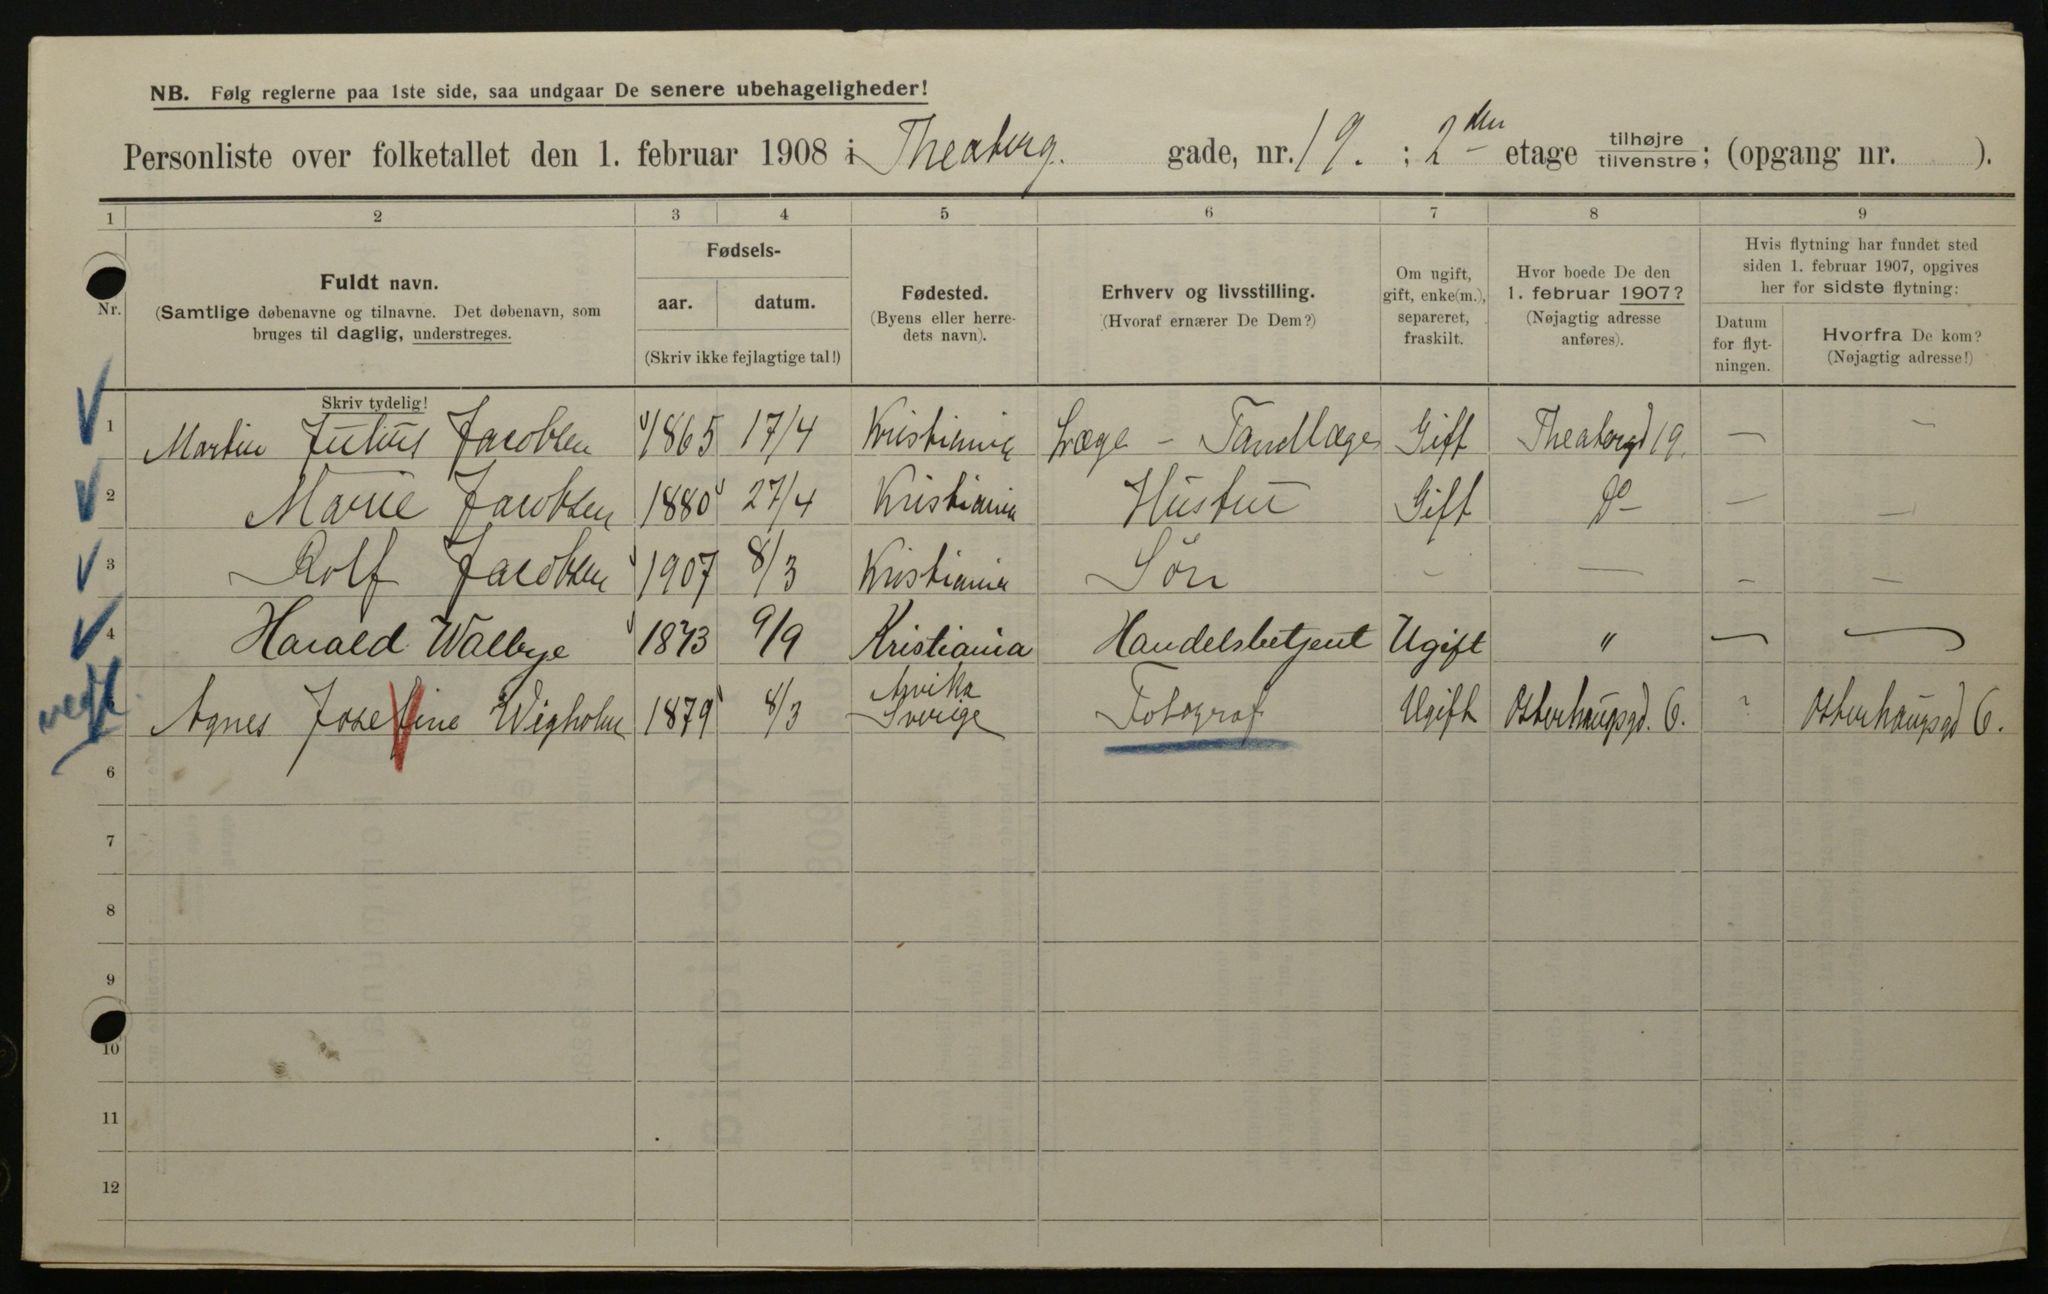 NB. Følg reglerne paa 1ste side, saa undgaar De senere ubehageligheder!
Personliste over folketallet den 1. februar 1908 i Theaterg. gade, nr. 19. ; 2den etage tilhøjre/tilvenstre; (opgang nr. ).
1 2 3 4 5 6 7 8 9
Nr.
Fuldt navn.
(Samtlige døbenavne og tilnavne. Det døbenavn, som
bruges til daglig, understreges.
Skriv tydelig!
Fødsels-
aar. datum.
(Skriv ikke fejlagtige tal!)
Fødested.
(Byens eller herre-
dets navn).
Erhverv og livsstilling.
(Hvoraf ernærer De Dem?)
Om ugift,
gift, enke(m.),
separeret,
fraskilt.
Hvor boede De den
1. februar 1907?
(Nøjagtig adresse
anføres).
Hvis flytning har fundet sted
siden 1. februar 1907, opgives
her for sidste flytning:
Datum
for flyt-
ningen.
Hvorfra De kom?
(Nøjagtig adresse!)
1 Martin Julius Jacobsen 1865 17/4 Kristiania Læge - Tandlæge Gift Theatergd 19. — -
2 Marie Jacobsen 1880 27/4 Kristiania Hustru Gift Do — —
3 Rolf Jacobsen 1907 8/3 Kristiania Søn - — - —
4 Harald Walbye 1873 9/9 Kristiania Handelsbetjent Ugift " — —
Agnes Josefine Wigholm 1879 8/3 Arvika Sverige Fotograf Ugift Osterhausgd. 6. Osterhausgd 6.
6
7
8
9
10
11
12